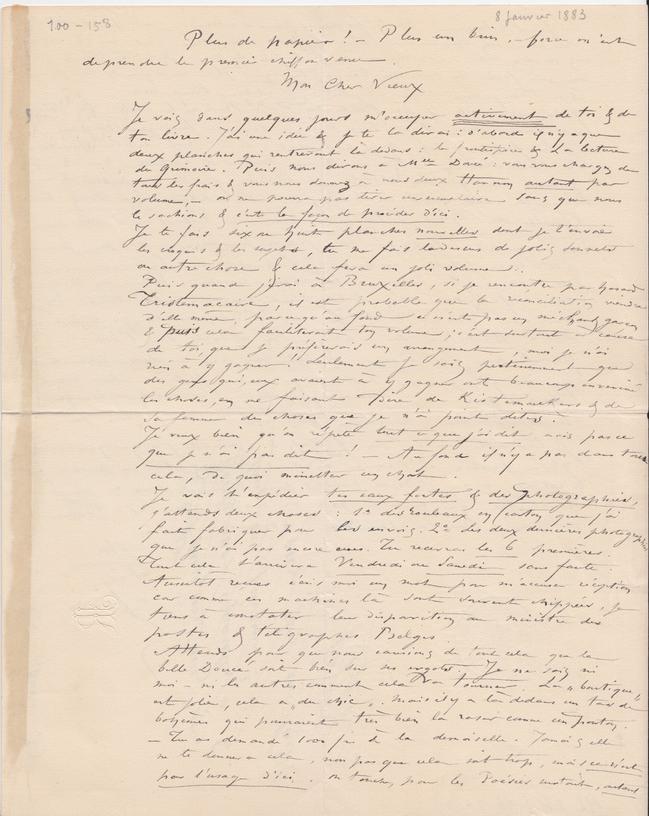 100-158
8 Janvier 1883
Plus de papier ! – Plus un brin, – force m'est
de prendre le premier chiffon venu.
Mon Cher Vieux
Je vais dans quelques jours m'occuper activement de toi & de
ton livre. J'ai une idée & je te la dirai : d'abord il n'y a que
deux planches qui rentreront là dedans : le frontispice & la lecture
du Grimoire. Puis nous dirons à Melle Doucé : vous vous chargez de
tous les frais & vous nous donnez à nous deux Hannon, autant par
volume, – on ne pourra pas tirer un exemplaire sans que nous
le sachions & c'est la façon de procéder d'ici.
Je te fais six ou huit planches nouvelles dont je t'envoie
les croquis & les sujets, tu me fais là-dessus de jolis sonnets
ou autre chose & cela fera un joli volume.
Puis quand j'irai à Bruxelles, si je rencontre par hasard
Kistemaeckers, il est probable que la réconciliation viendra
d'elle même, parce qu'au fond ce n'est pas un méchant garçon
& puis cela faciliterait ton volume, c'est surtout à cause
de toi, que je préférerais un arrangement, moi je n'ai
rien à y gagner ! Seulement je sais pertinemment que
des gens qui, eux avaient à y gagner ont beaucoup envenimé
les choses, en me faisant dire de Kistemaeckers & de
sa femme des choses que je n'ai point dites.
Je veux bien qu'on répète tout ce que j'ai dit mais pas ce
que je n'ai pas dit ! – Au fond il n'y a pas dans tout
cela, de quoi fouetter un chat.
Je vais t'expédier tes eaux fortes & des photographies,
j'attends deux choses : 1° des rouleaux en carton que j'ai
fait fabriquer pour les envois. 2° des deux dernières photographies
que je n'ai pas encore eues. Tu recevras les 6 premières.
Tout cela t'arrivera Vendredi ou Samedi sans faute.
Aussitôt reçues écris moi un mot pour m'accuser réception
car comme ces machines là sont souvent chippées, je
tiens à constater leur disparition au ministre des
postes & télégraphes Belges
Attends pour que nous causions de tout cela que la
belle Doucé, soit bien sur ses ergots. Je ne sais ni
moi – ni les autres comment cela va tourner. La "boutique"
est jolie, cela a du chic, mais il y a là dedans un tas de
bohèmes qui pourraient très bien la raser comme un ponton.
– Tu as demandé 1000 frs à la demoiselle. Jamais elle
ne te donnera cela, non pas que cela soit trop, mais ce n'est
pas l'usage d'ici. On touche, pour les Poésies surtout, autant